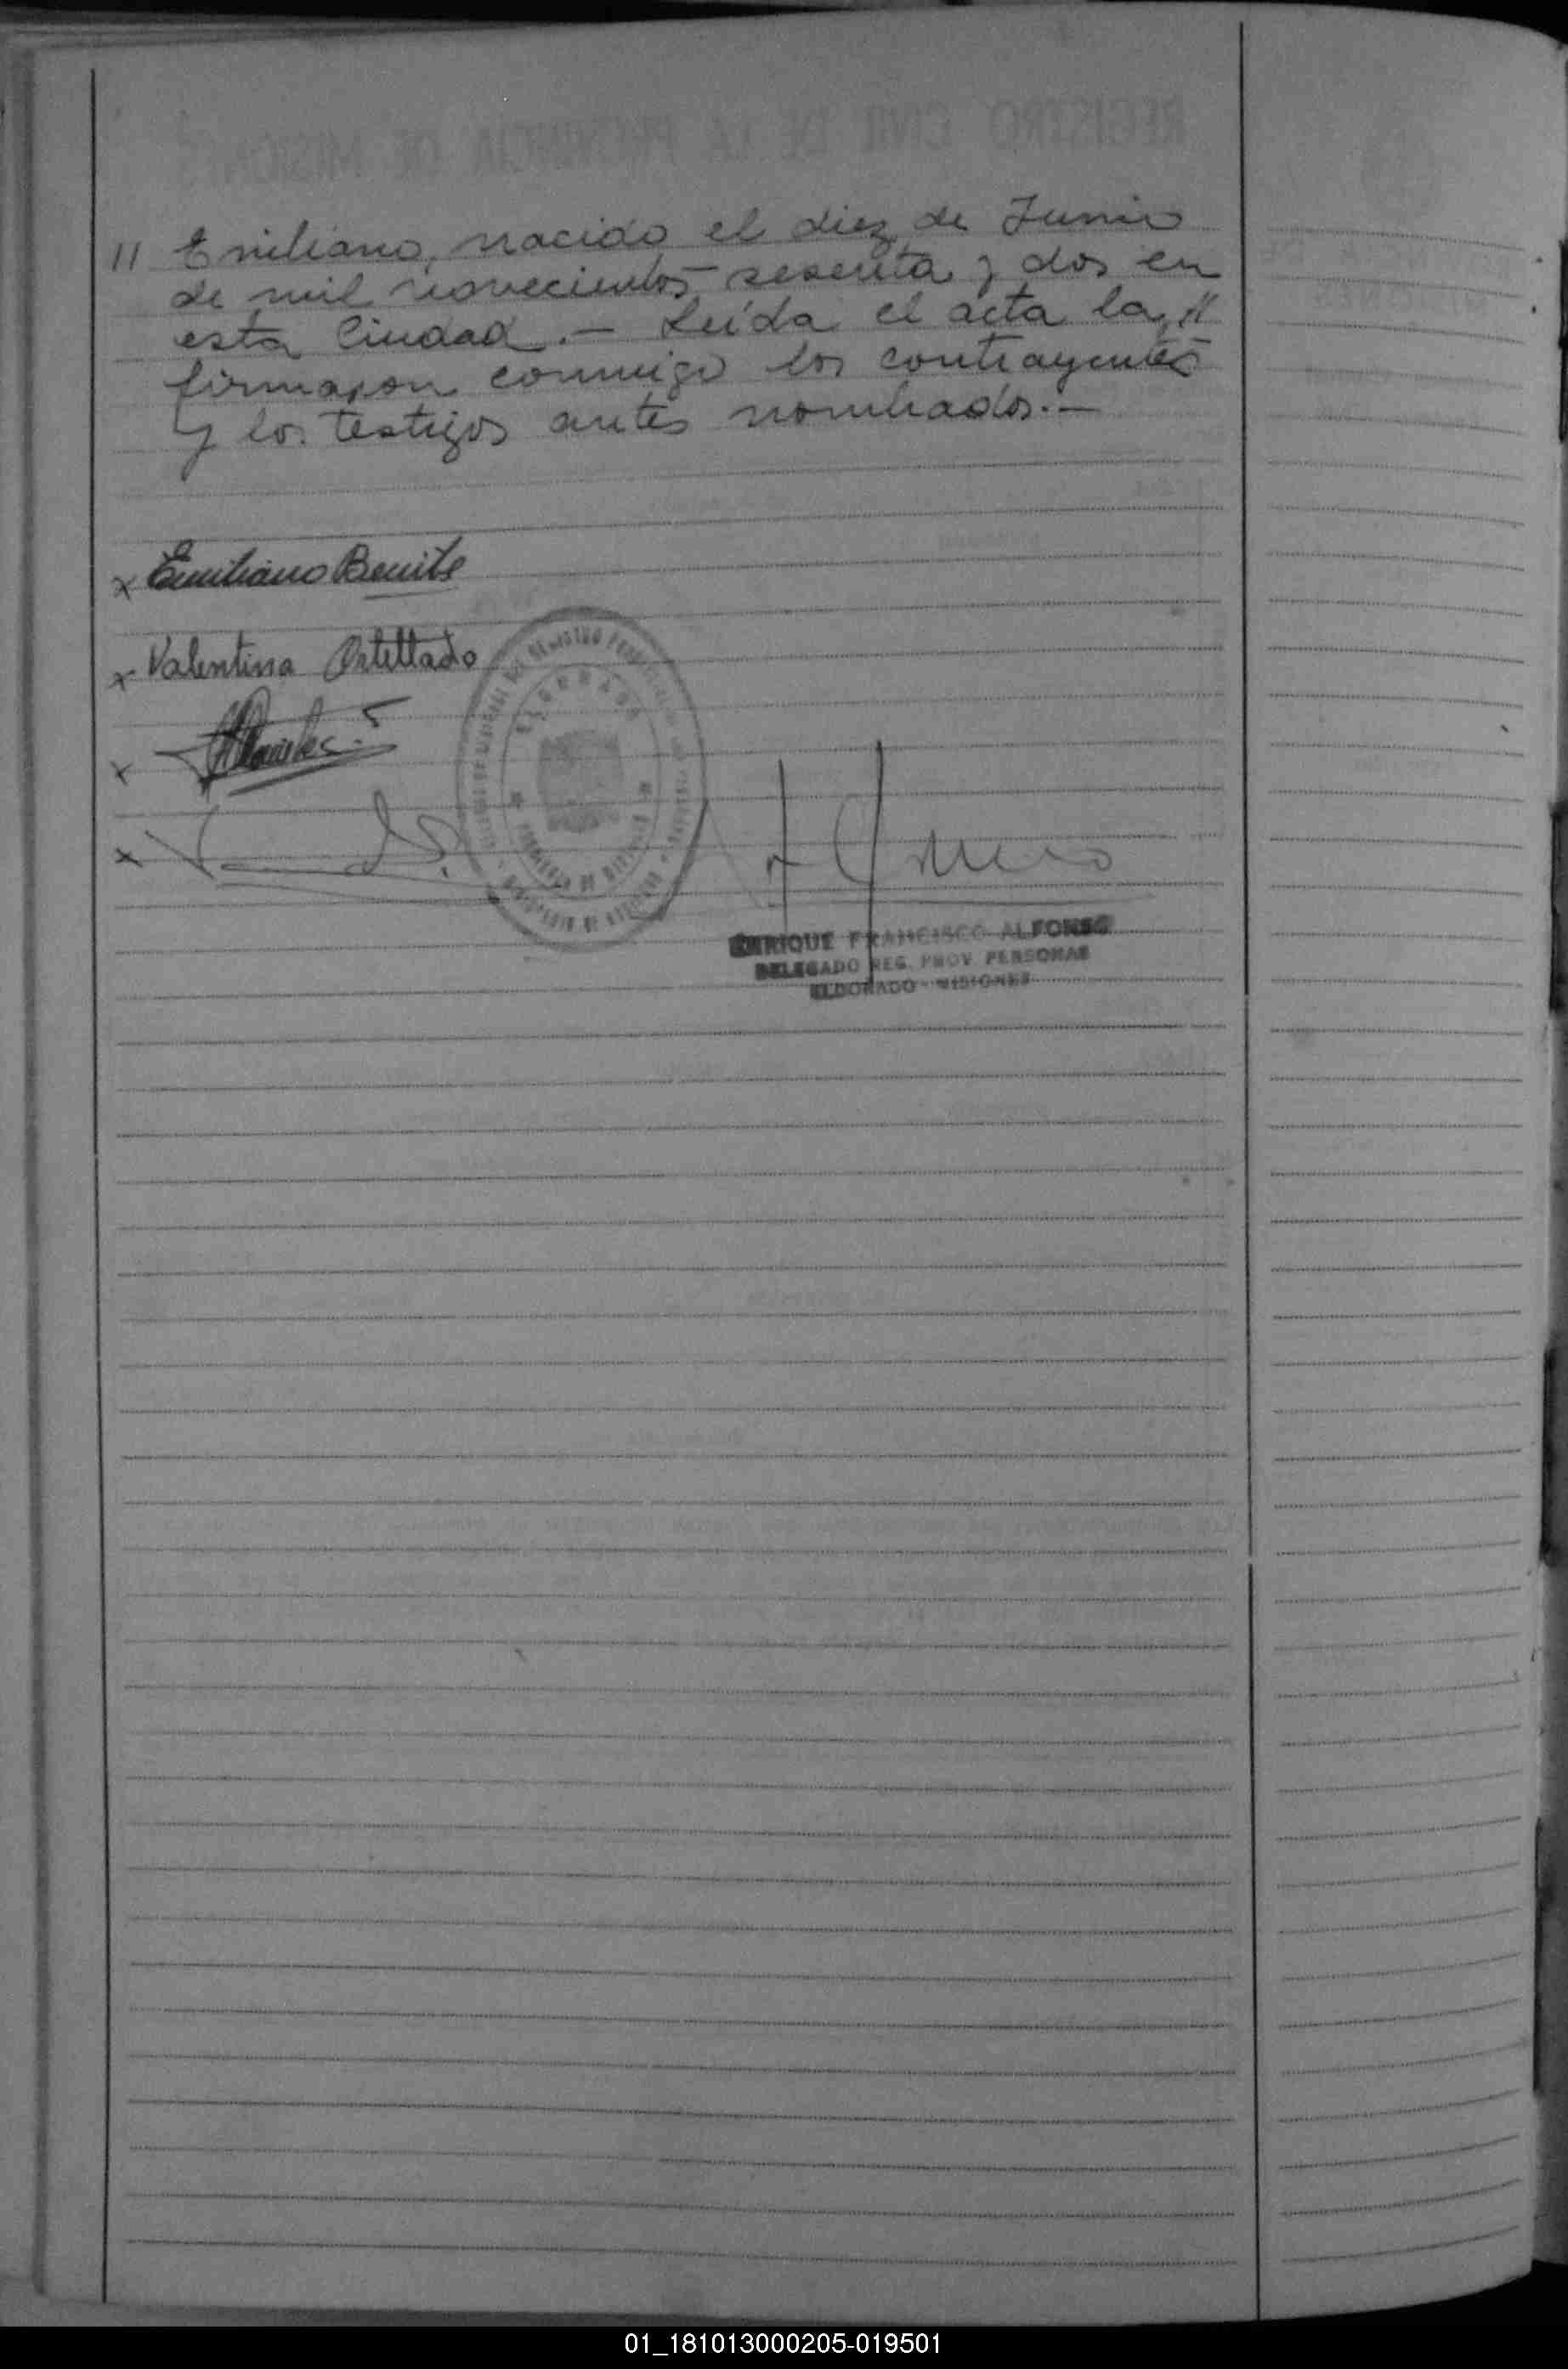 // Emiliano, nacido el diez de Junio
de mil novecientos sesenta y dos en
esta Ciudad. – Leída el acta la //
firmaron conmigo los contrayentes
y los testigos antes nombrados. –
x Emiliano Benite
x Valentina Ortellado
x
x
ELDORADO
ENRIQUE FRANCISCO ALFONSO
DELEGADO REG. PROV. PERSONAS
ELDORADO - MISIONES
REGISTRO CIVIL DE LA PROVINCIA DE MISIONES
01_181013000205-019501